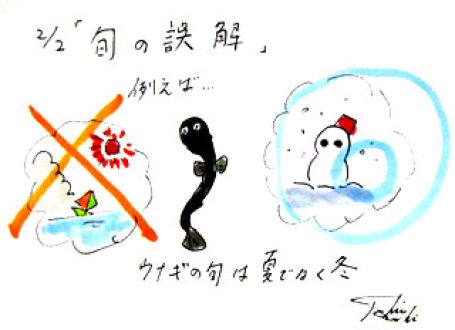 2/2「旬の誤解」
例えば…
ウナギの旬は夏でなく冬